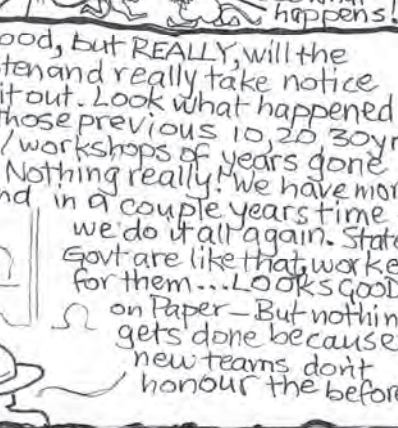 happens!
ood, but REALLY, will the
ten and really take notice
it out. Look what happened
those previous 10, 20 30yr
/workshops of years gone
Nothing really! We have mor
nd in a couple years time
we do it all again. State
Govt are like that, worke
for them... LOOKS GOOD
on Paper - But nothin
gets done because
new teams don't
honour the before